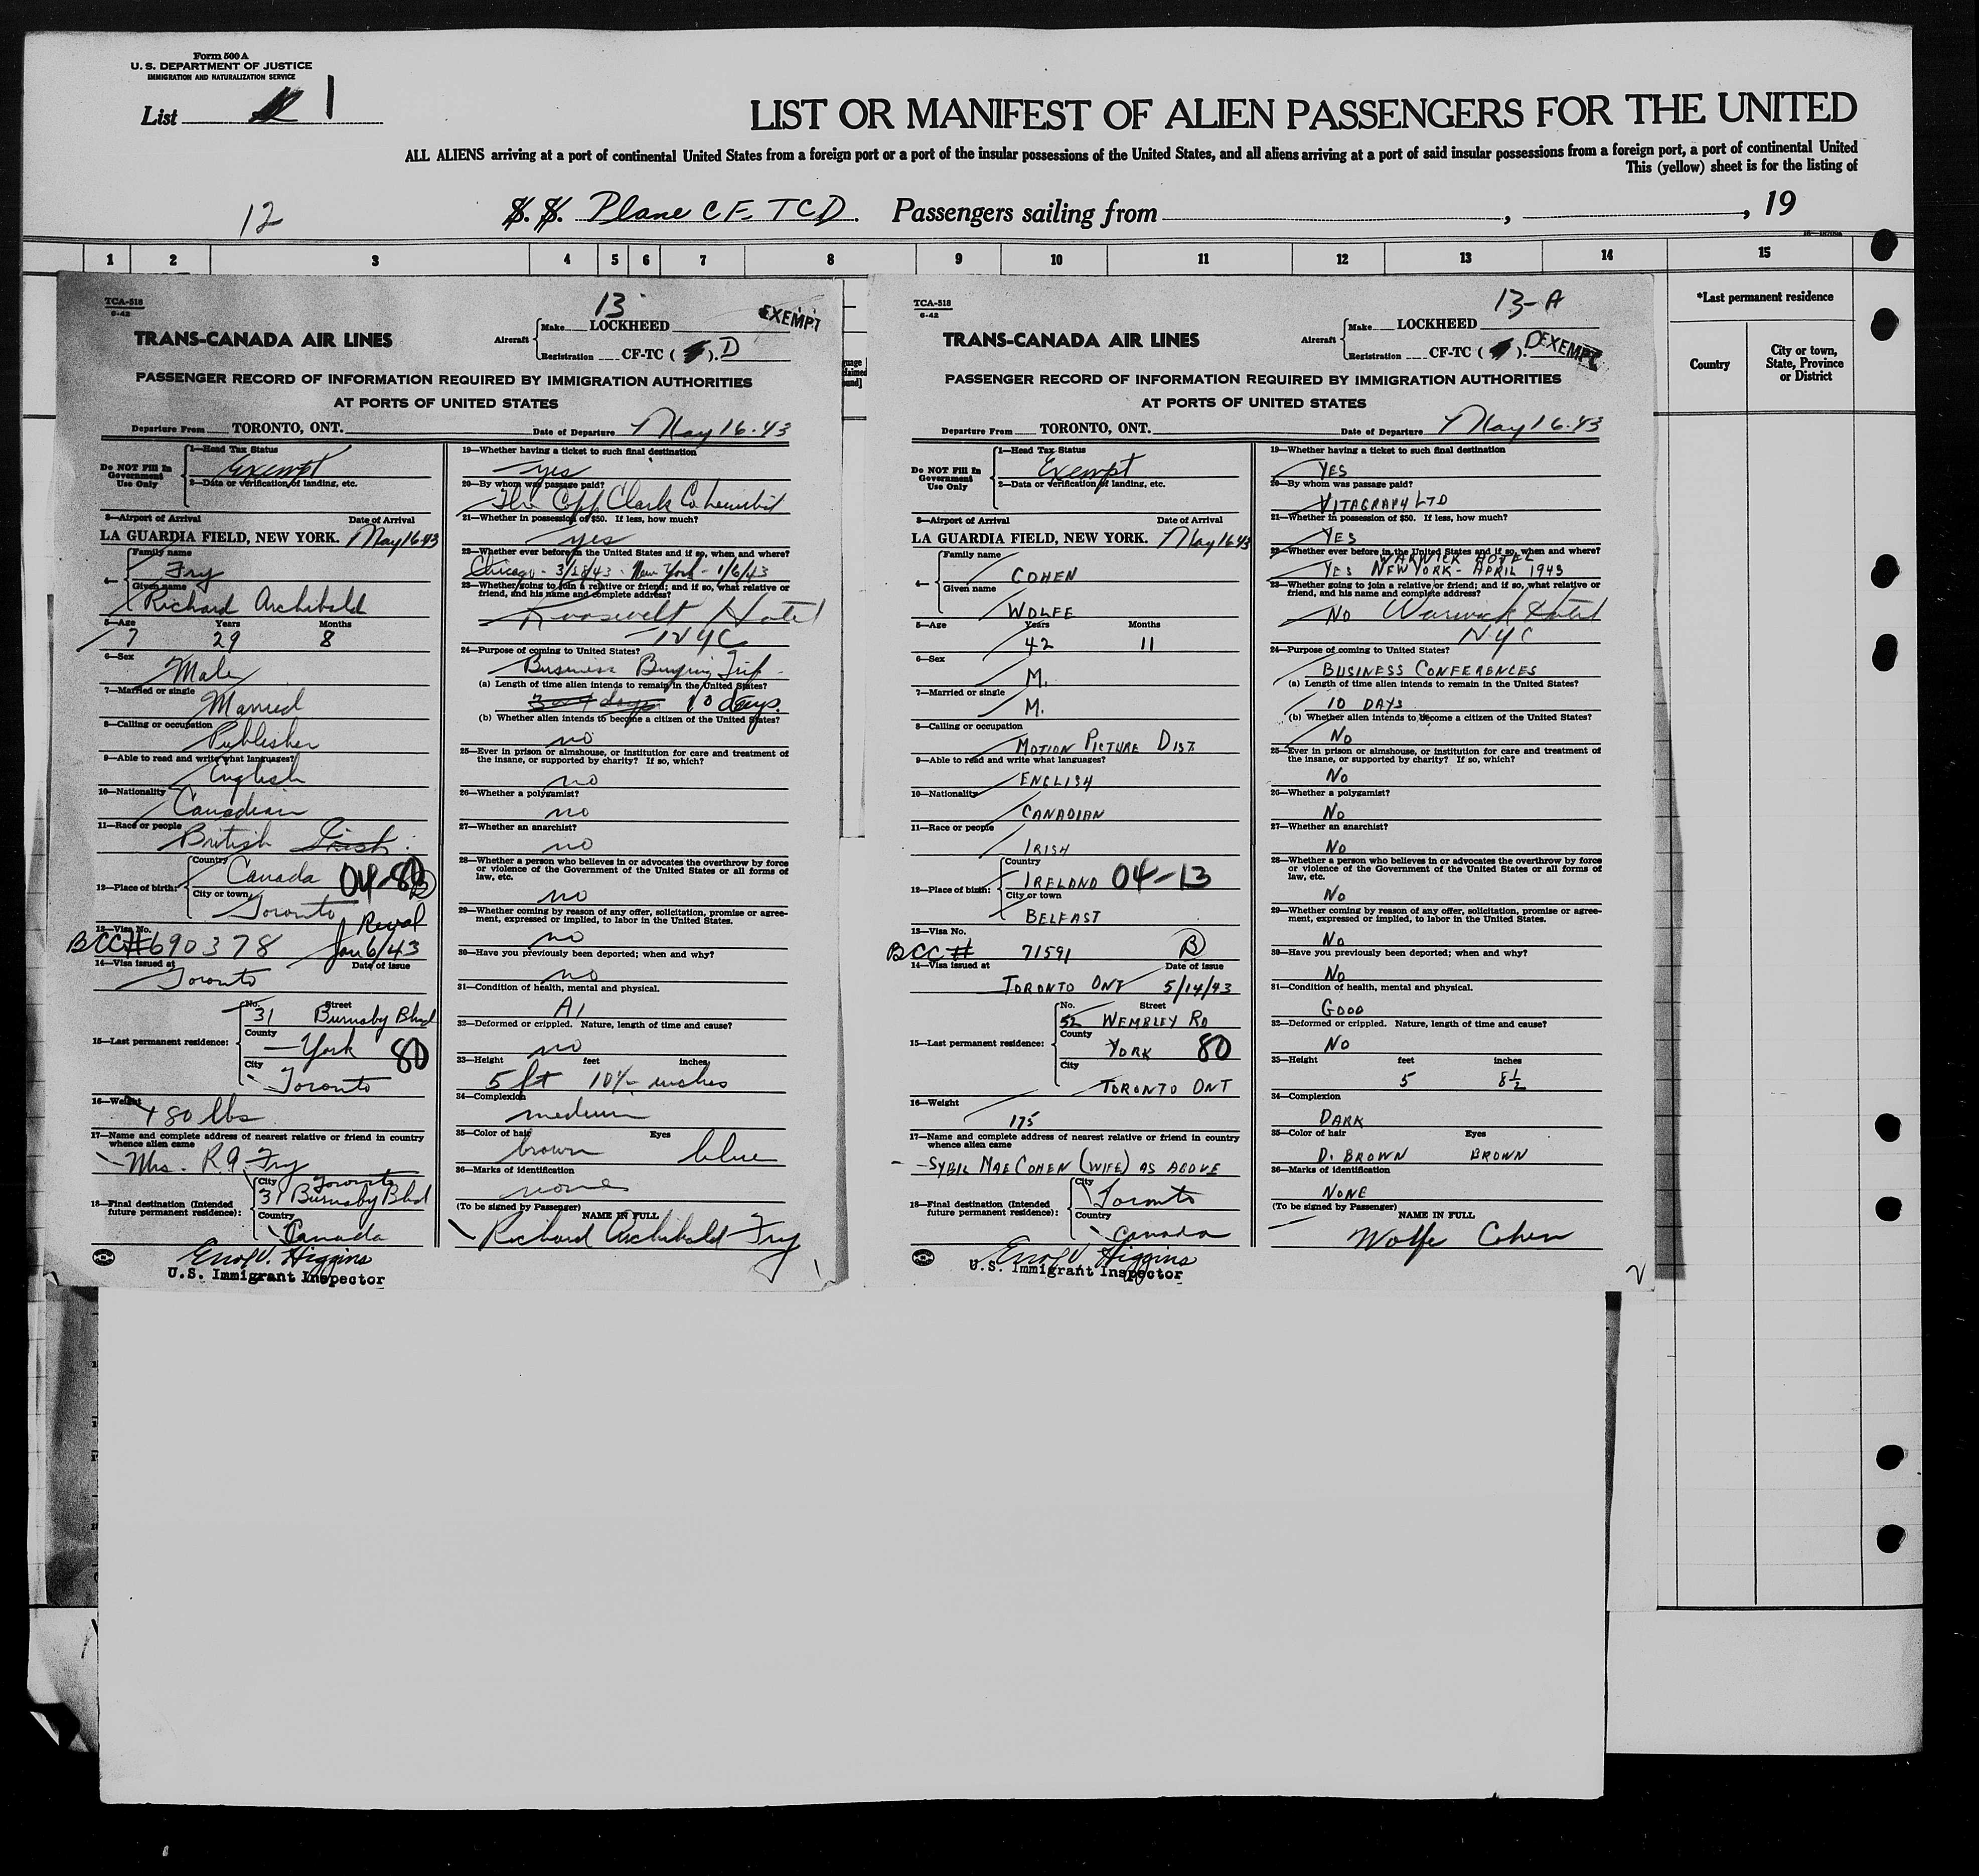 Form 500 A
U. S. DEPARTMENT OF JUSTICE
IMMIGRATION AND NATURALIZATION SERVICE
List 1
LIST OR MANIFEST OF ALIEN PASSENGERS FOR THE UNITED
ALL ALIENS arriving at a port of continental United States from a foreign port or a port of the insular possessions of the United States, and all aliens arriving at a port of said insular possessions from a foreign port, a port of continental United
This (yellow) sheet is for the listing of
12
S. S. Plane CF-TCD. Passengers sailing from , , 19
1 2 3 4 5 6 7 8 9 10 11 12 13 14 15
*Last permanent residence
Country
City or town, State, Province or District
TCA-518
6-42
13
EXEMPT
TRANS-CANADA AIR LINES
Aircraft
Make LOCKHEED
Registration CF-TC ( ). D
PASSENGER RECORD OF INFORMATION REQUIRED BY IMMIGRATION AUTHORITIES
AT PORTS OF UNITED STATES
Departure From TORONTO, ONT.
Date of Departure May 16-43
Do NOT Fill In Government Use Only
1—Head Tax Status
Exempt
2—Data or verification of landing, etc.
3—Airport of Arrival Date of Arrival
LA GUARDIA FIELD, NEW YORK. May 16 43
4—
Family name
Fry
Given name
Richard Archibald
5—Age Years Months
7 29 8
6—Sex
Male
7—Married or single
Married
8—Calling or occupation
Publisher
9—Able to read and write what languages?
English
10—Nationality
Canadian
11—Race or people
British Irish
12—Place of birth:
Country
Canada 04-80
B
City or town
Toronto
13—Visa No.
BCC# 690378 Jan 6/43
14—Visa issued at Date of issue
Toronto
15—Last permanent residence:
No. Street
31 Burnaby Blvd
County
York 80
City
Toronto
16—Weight
180 lbs
17—Name and complete address of nearest relative or friend in country whence alien came
Mrs. R A Fry
18—Final destination (Intended future permanent residence):
City Toronto
31 Burnaby Blvd
Country
Canada
Higgins
U.S. Immigrant Inspector
19—Whether having a ticket to such final destination
yes
20—By whom was passage paid?
The Copp Clark Co Limited
21—Whether in possession of $50. If less, how much?
yes
22—Whether ever before in the United States and if so, when and where?
Chicago - 3/18/43 - New York - 1/6/43
23—Whether going to join a relative or friend; and if so, what relative or friend, and his name and complete address?
Roosevelt Hotel
NYC
24—Purpose of coming to United States?
Business Buying Trip
(a) Length of time alien intends to remain in the United States?
10 days.
(b) Whether alien intends to become a citizen of the United States?
no
25—Ever in prison or almshouse, or institution for care and treatment of the insane, or supported by charity? If so, which?
no
26—Whether a polygamist?
no
27—Whether an anarchist?
no
28—Whether a person who believes in or advocates the overthrow by force or violence of the Government of the United States or all forms of law, etc.
no
29—Whether coming by reason of any offer, solicitation, promise or agreement, expressed or implied, to labor in the United States.
no
30—Have you previously been deported; when and why?
no
31—Condition of health, mental and physical.
A1
32—Deformed or crippled. Nature, length of time and cause?
no
33—Height feet inches
5 ft 10½ inches
34—Complexion
medium
35—Color of hair Eyes
brown blue
36—Marks of identification
none
(To be signed by Passenger)
NAME IN FULL
Richard Archibald Fry
1
TCA-518
6-42
13-A
TRANS-CANADA AIR LINES
Aircraft
Make LOCKHEED
Registration CF-TC ( ). D EXEMPT
PASSENGER RECORD OF INFORMATION REQUIRED BY IMMIGRATION AUTHORITIES
AT PORTS OF UNITED STATES
Departure From TORONTO, ONT.
Date of Departure May 16-43
Do NOT Fill In Government Use Only
1—Head Tax Status
Exempt
2—Data or verification of landing, etc.
3—Airport of Arrival Date of Arrival
LA GUARDIA FIELD, NEW YORK. May 16 43
4—
Family name
COHEN
Given name
WOLFE
5—Age Years Months
42 11
6—Sex
M.
7—Married or single
M.
8—Calling or occupation
MOTION PICTURE DIST.
9—Able to read and write what languages?
ENGLISH
10—Nationality
CANADIAN
11—Race or people
IRISH
12—Place of birth:
Country
IRELAND 04-13
City or town
BELFAST
13—Visa No.
BCC # 71591 B
14—Visa issued at Date of issue
TORONTO ONT 5/14/43
15—Last permanent residence:
No. Street
52 WEMBLEY RD
County
YORK 80
City
TORONTO ONT
16—Weight
175
17—Name and complete address of nearest relative or friend in country whence alien came
SYBIL MAE COHEN (WIFE) AS ABOVE
18—Final destination (Intended future permanent residence):
City
Toronto
Country
Canada
Higgins
U.S. Immigrant Inspector
19—Whether having a ticket to such final destination
YES
20—By whom was passage paid?
VITAGRAPH LTD
21—Whether in possession of $50. If less, how much?
YES
22—Whether ever before in the United States and if so, when and where?
WARWICK HOTEL
YES NEW YORK - APRIL 1943
23—Whether going to join a relative or friend; and if so, what relative or friend, and his name and complete address?
NO Warwick Hotel
NYC
24—Purpose of coming to United States?
BUSINESS CONFERENCES
(a) Length of time alien intends to remain in the United States?
10 DAYS
(b) Whether alien intends to become a citizen of the United States?
NO
25—Ever in prison or almshouse, or institution for care and treatment of the insane, or supported by charity? If so, which?
NO
26—Whether a polygamist?
NO
27—Whether an anarchist?
NO
28—Whether a person who believes in or advocates the overthrow by force or violence of the Government of the United States or all forms of law, etc.
NO
29—Whether coming by reason of any offer, solicitation, promise or agreement, expressed or implied, to labor in the United States.
NO
30—Have you previously been deported; when and why?
NO
31—Condition of health, mental and physical.
GOOD
32—Deformed or crippled. Nature, length of time and cause?
NO
33—Height feet inches
5 8½
34—Complexion
DARK
35—Color of hair Eyes
D. BROWN BROWN
36—Marks of identification
NONE
(To be signed by Passenger)
NAME IN FULL
Wolfe Cohen
2